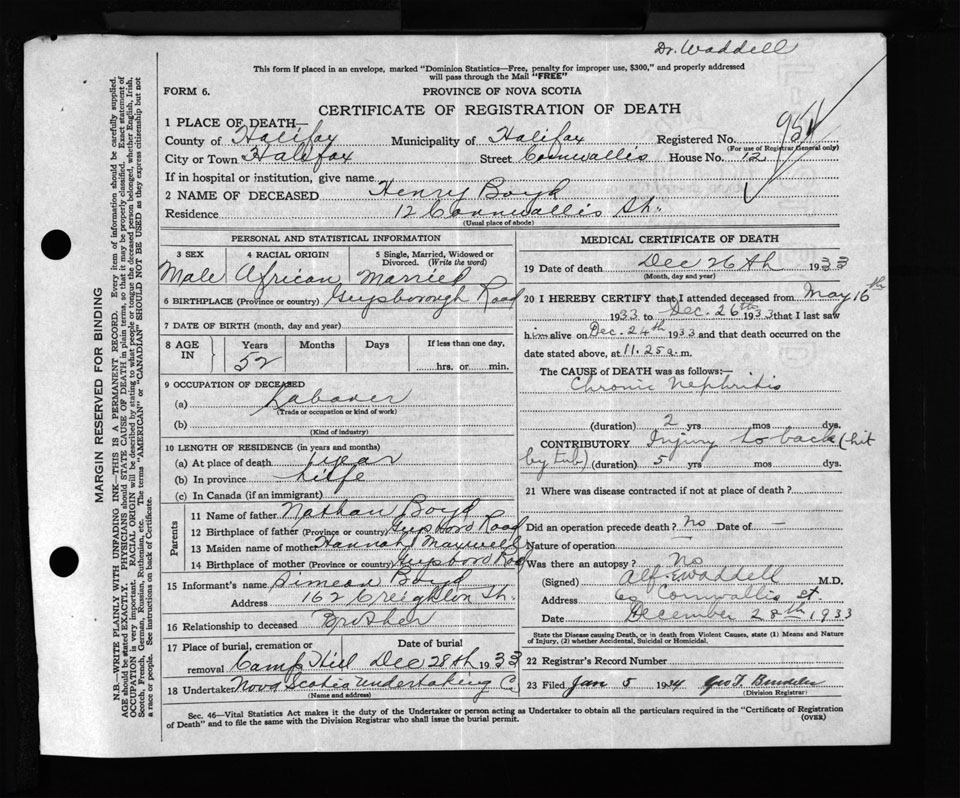 Dr. Waddell
This form if placed in an envelope, marked "Dominion Statistics—Free, penalty for improper use, $300," and properly addressed
will pass through the Mail "FREE"
FORM 6.
PROVINCE OF NOVA SCOTIA
CERTIFICATE OF REGISTRATION OF DEATH
1 PLACE OF DEATH—
County of Halifax Municipality of Halifax Registered No. 951
(For use of Registrar General only)
City or Town Halifax Street Cornwallis House No. 12
If in hospital or institution, give name
2 NAME OF DECEASED Henry Boyd
Residence 12 Cornwallis St.
(Usual place of abode)
PERSONAL AND STATISTICAL INFORMATION
3 SEX 4 RACIAL ORIGIN 5 Single, Married, Widowed or
Divorced. (Write the word)
Male African Married
6 BIRTHPLACE (Province or country) Guysborough Road
7 DATE OF BIRTH (month, day and year)
8 AGE IN Years Months Days If less than one day,
52 hrs. or min.
9 OCCUPATION OF DECEASED
(a) Labarer
(Trade or occupation or kind of work)
(b)
(Kind of industry)
10 LENGTH OF RESIDENCE (in years and months)
(a) At place of death 1 year
(b) In province Life
(c) In Canada (if an immigrant)
Parents
11 Name of father Nathan Boyd
12 Birthplace of father (Province or country) Guysboro Road
13 Maiden name of mother Hannah Maxwell
14 Birthplace of mother (Province or country) Guysboro Road
15 Informant's name Simeon Boyd
Address 162 Creighton St.
16 Relationship to deceased Brother
17 Place of burial, cremation or removal Camp Hill Date of burial Dec 28th 1933
18 Undertaker Nova Scotia Undertaking C.
(Name and address)
MEDICAL CERTIFICATE OF DEATH
19 Date of death Dec 26th 1933
(Month, day and year)
20 I HEREBY CERTIFY that I attended deceased from May 16th
1933 to Dec. 26th 1933 that I last saw
him alive on Dec. 24th 1933 and that death occurred on the
date stated above, at 11.25 a.m.
The CAUSE of DEATH was as follows:—
Chronic Nephritis
(duration) 2 yrs mos dys.
CONTRIBUTORY Injury to back (hit
by tub) (duration) 5 yrs mos dys.
21 Where was disease contracted if not at place of death?
Did an operation precede death? No Date of —
Nature of operation —
Was there an autopsy? No
(Signed) Alf. E Waddell M.D.
Address Cornwallis St.
Date December 28th 1933
State the Disease causing Death, or in death from Violent Causes, state (1) Means and Nature
of Injury, (2) whether Accidental, Suicidal or Homicidal.
22 Registrar's Record Number
23 Filed Jan 5 1934
(Division Registrar)
Sec. 46—Vital Statistics Act makes it the duty of the Undertaker or person acting as Undertaker to obtain all the particulars required in the "Certificate of Registration
of Death" and to file the same with the Division Registrar who shall issue the burial permit. (OVER)
MARGIN RESERVED FOR BINDING
N.B.—WRITE PLAINLY WITH UNFADING INK—THIS IS A PERMANENT RECORD. Every item of information should be carefully supplied.
AGE should be stated EXACTLY. PHYSICIANS should STATE CAUSE OF DEATH in plain terms, so that it may be properly classified. Exact statement of
OCCUPATION is very important. RACIAL ORIGIN will be described by stating to what people or tongue the deceased person belonged, whether English, Irish,
Scotch, French, German, Russian, Ruthenian, etc. The terms "AMERICAN" or "CANADIAN" SHOULD NOT BE USED as they express citizenship but not
a race or people. See instructions on back of Certificate.